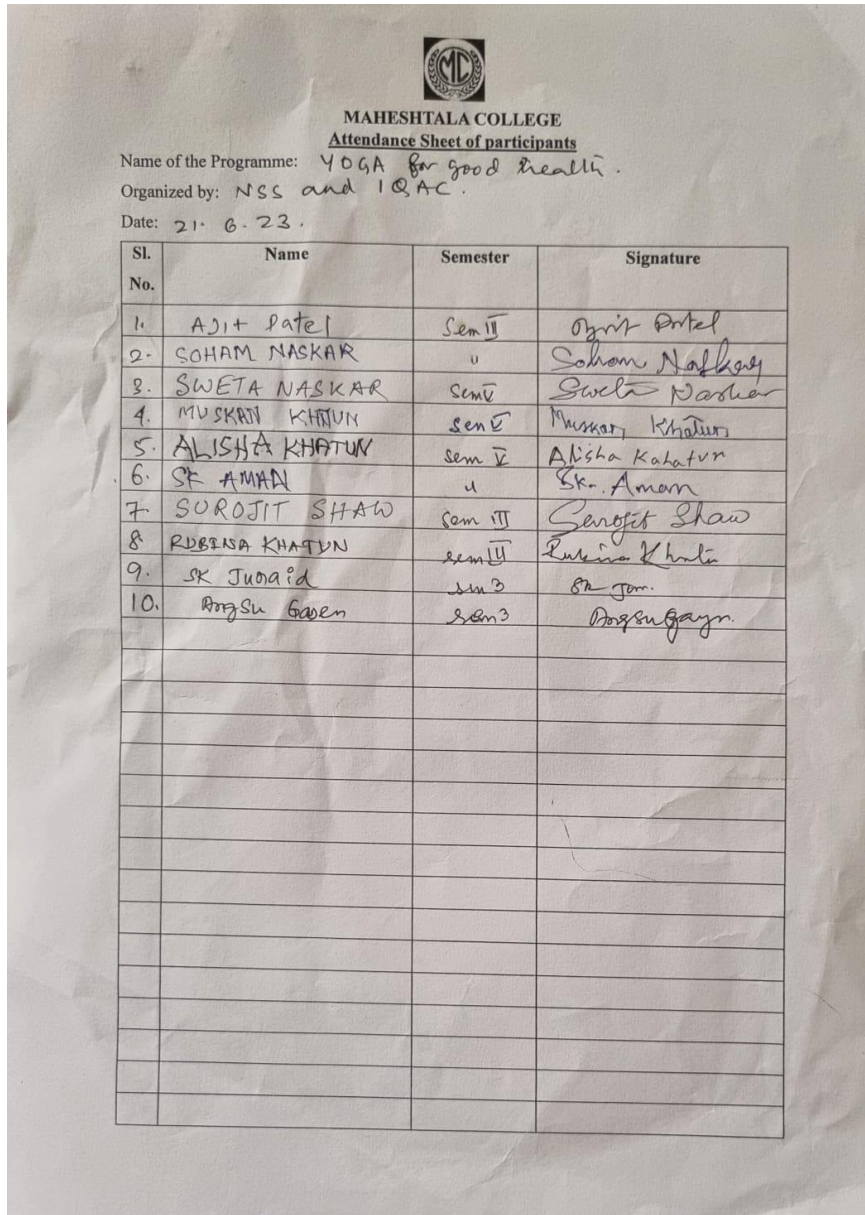 MC
MAHESHTALA COLLEGE
Attendance Sheet of participants
Name of the Programme: YOGA for good health.
Organized by: NSS and IQAC.
Date: 21. 6. 23.
Sl. No. Name Semester Signature
1. AJit Patel Sem III Patel
2. SOHAM NASKAR " Soham Naskar
3. SWETA NASKAR Sem V Sweta Naskar
4. MUSKAN KHATUN Sem V Muskan Khatun
5. ALISHA KHATUN Sem V Alisha Kahatun
6. SK AMAN " Sk. Aman
7. SUROJIT SHAW Sem III Surojit Shaw
8 RUBINA KHATUN Sem III Rubina Khatun
9. SK Junaid Sem 3 SK Jun.
10. AngSu Gayen Sem 3 Angsu Gayn.